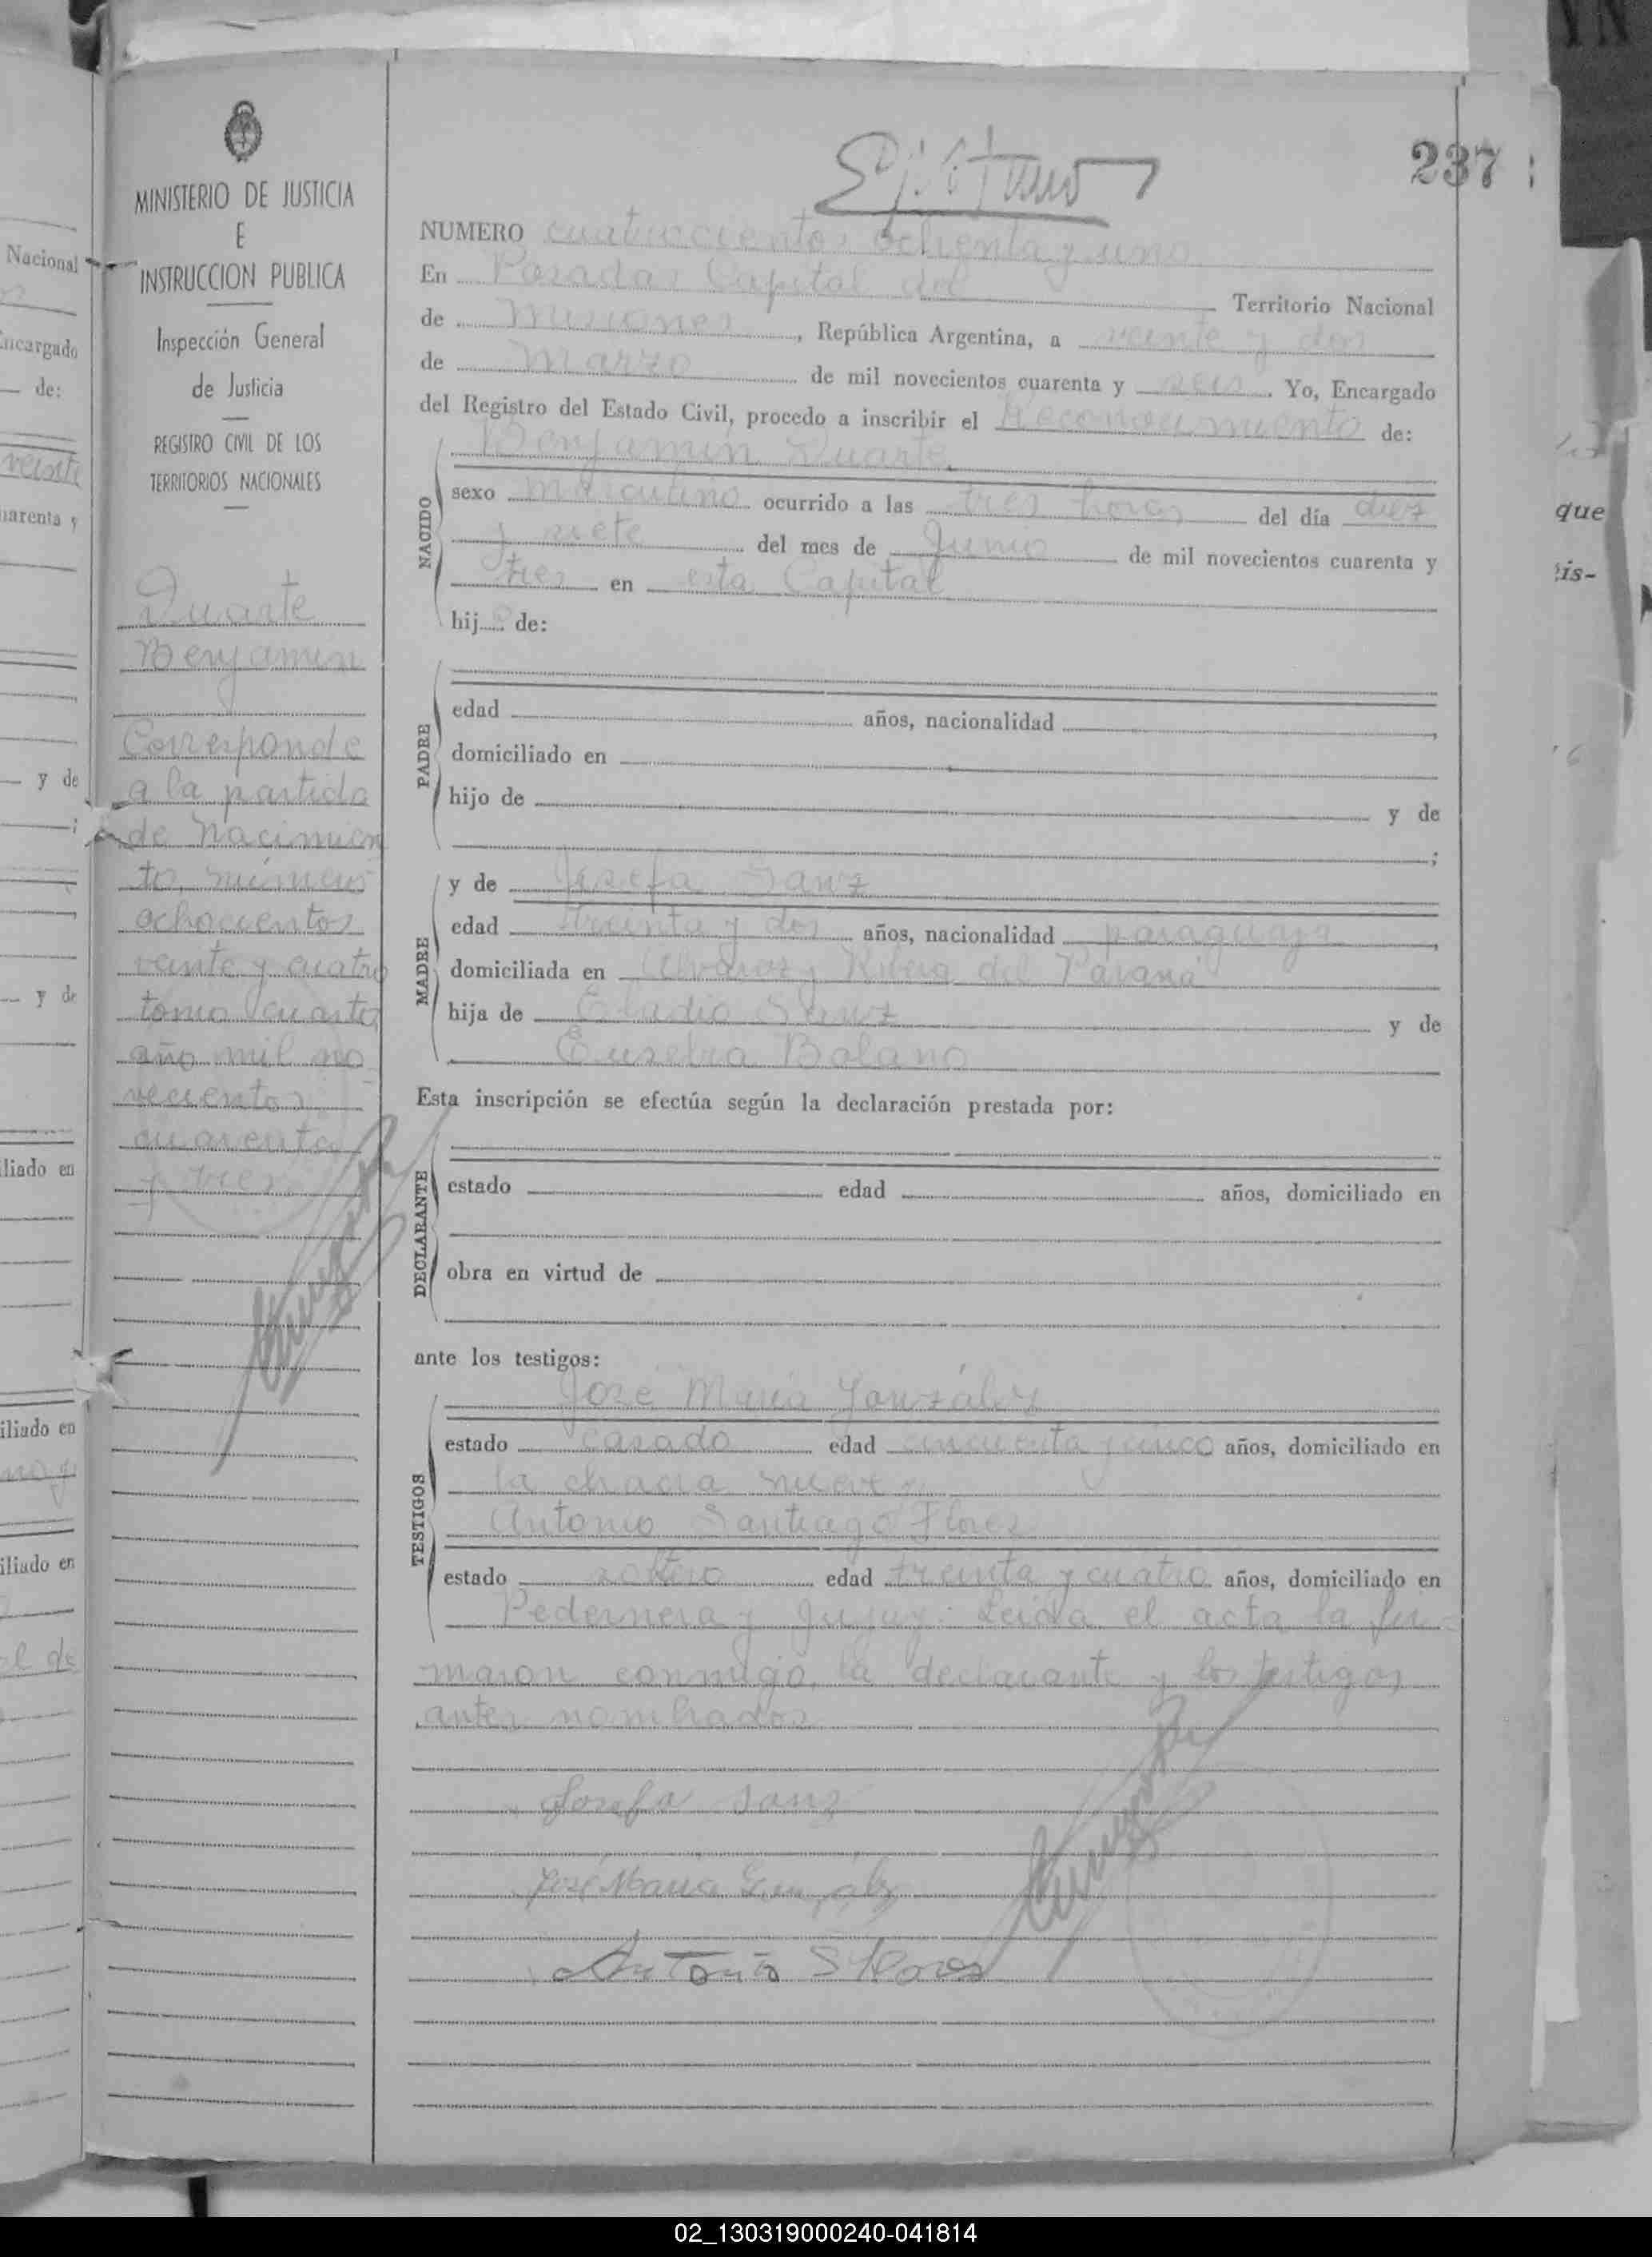 237
MINISTERIO DE JUSTICIA
E
INSTRUCCION PUBLICA
Inspección General
de Justicia
REGISTRO CIVIL DE LOS
TERRITORIOS NACIONALES
Duarte
Benjamin
Corresponde
a la partida
de Nacimien
to, número
ochocientos
veinte y cuatro
tomo cuarto
año mil no
vecientos
cuarenta
y tres
NUMERO cuatrocientos ochenta y uno
En Posadas Capital del Territorio Nacional
de Misiones, República Argentina, a veinte y dos
de marzo de mil novecientos cuarenta y seis. Yo, Encargado
del Registro del Estado Civil, procedo a inscribir el Reconocimiento de:
NACIDO
Benjamin Duarte
sexo masculino ocurrido a las tres horas del día diez
y siete del mes de Junio de mil novecientos cuarenta y
tres en esta Capital
hijo de:
PADRE
edad años, nacionalidad ,
domiciliado en
hijo de y de
;
MADRE
y de Josefa Sanz
edad treinta y dos años, nacionalidad paraguaya,
domiciliada en Alvarez y Ribera del Paraná
hija de Eladio Sanz y de
Eusebia Bolano
Esta inscripción se efectúa según la declaración prestada por:
DECLARANTE
estado edad años, domiciliado en
obra en virtud de
ante los testigos:
TESTIGOS
José María González
estado casado edad cincuenta y cinco años, domiciliado en
la chacra nueve
Antonio Santiago Flores
estado soltero edad treinta y cuatro años, domiciliado en
Pedernera y Jujuy. Leida el acta la fir
maron conmigo, la declarante y los testigos
antes nombrados
Josefa Sanz
José María González
Antonio S Flores
Nacional
Encargado
de:
veinte
uarenta y
y de
;
y de
iliado en
iliado en
iliado en
que
is-
02_130319000240-041814